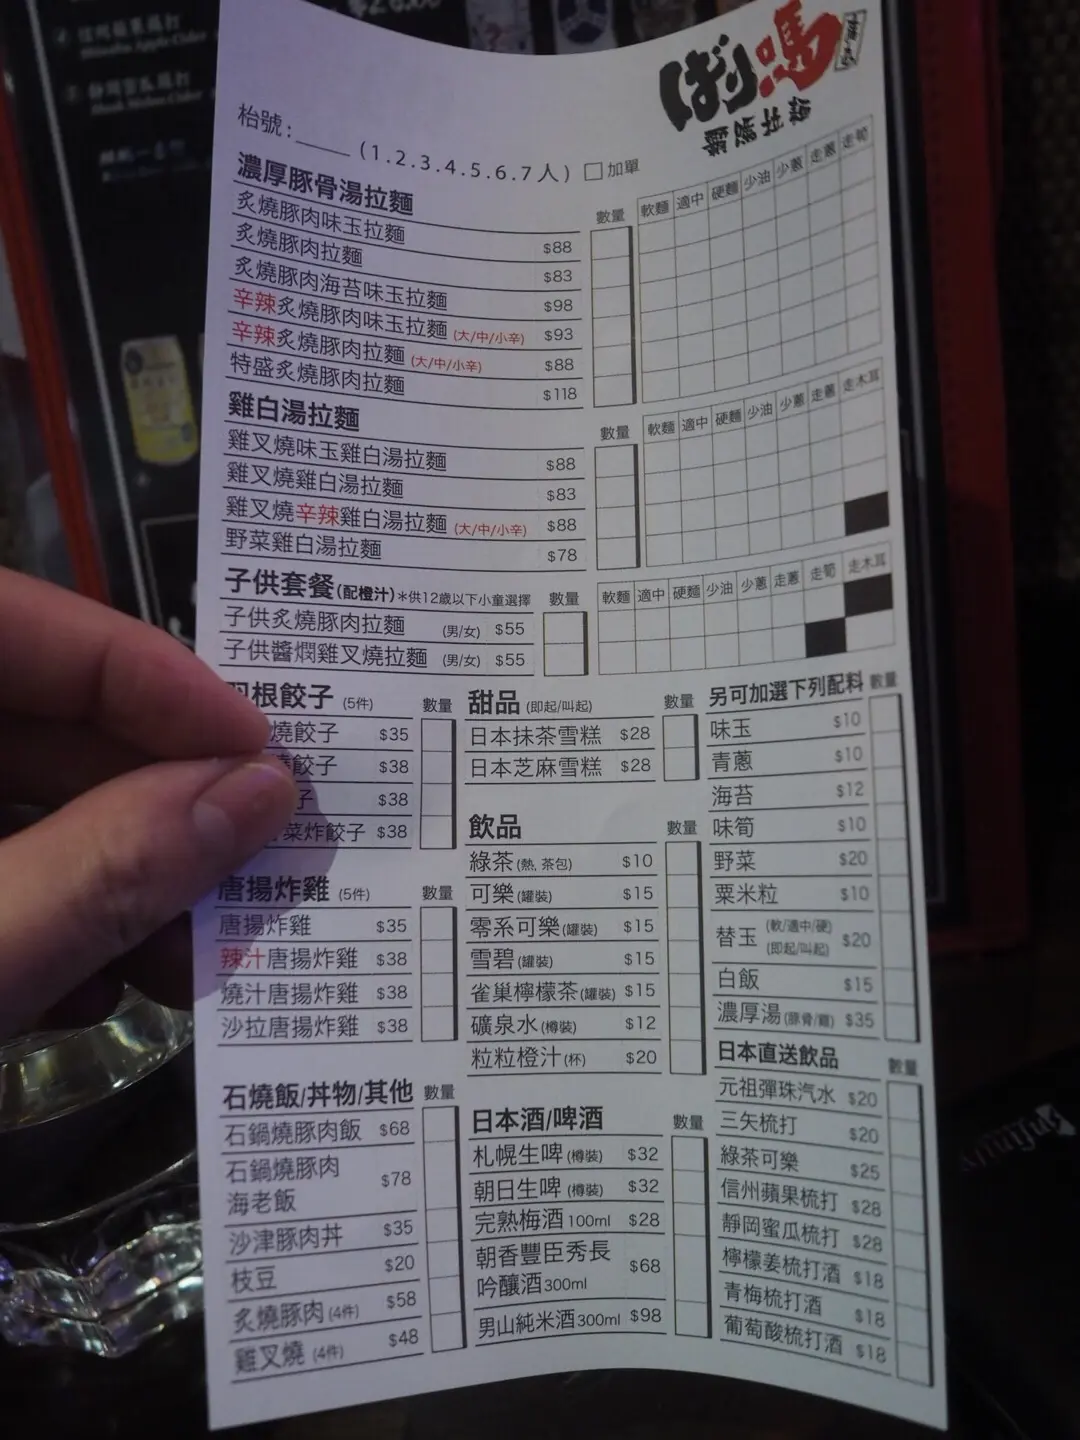 信州蘋果梳打
Shinshu Apple Cider
靜岡蜜瓜梳打
ばり嗎
雞湯拉麵
枱號：____ (1.2.3.4.5.6.7人) □加單
濃厚豚骨湯拉麵 數量 軟麵 適中 硬麵 少油 少蔥 走蔥 走筍
炙燒豚肉味玉拉麵 $88
炙燒豚肉拉麵 $83
炙燒豚肉海苔味玉拉麵 $98
辛辣炙燒豚肉味玉拉麵 (大/中/小辛) $93
辛辣炙燒豚肉拉麵 (大/中/小辛) $88
特盛炙燒豚肉拉麵 $118
雞白湯拉麵 數量 軟麵 適中 硬麵 少油 少蔥 走蔥 走木耳
雞叉燒味玉雞白湯拉麵 $88
雞叉燒雞白湯拉麵 $83
雞叉燒辛辣雞白湯拉麵 (大/中/小辛) $88
野菜雞白湯拉麵 $78
子供套餐(配橙汁)*供12歲以下小童選擇 數量 軟麵 適中 硬麵 少油 少蔥 走蔥 走筍 走木耳
子供炙燒豚肉拉麵 (男/女) $55
子供醬燜雞叉燒拉麵 (男/女) $55
根餃子 (5件) 數量
燒餃子 $35
餃子 $38
子 $38
菜炸餃子 $38
唐揚炸雞 (5件) 數量
唐揚炸雞 $35
辣汁唐揚炸雞 $38
燒汁唐揚炸雞 $38
沙拉唐揚炸雞 $38
石燒飯/丼物/其他 數量
石鍋燒豚肉飯 $68
石鍋燒豚肉
海老飯 $78
沙津豚肉丼 $35
枝豆 $20
炙燒豚肉 (4件) $58
雞叉燒 (4件) $48
甜品 (即起/叫起) 數量
日本抹茶雪糕 $28
日本芝麻雪糕 $28
飲品 數量
綠茶(熱, 茶包) $10
可樂(罐裝) $15
零系可樂(罐裝) $15
雪碧(罐裝) $15
雀巢檸檬茶(罐裝) $15
礦泉水(樽裝) $12
粒粒橙汁(杯) $20
日本酒/啤酒 數量
札幌生啤(樽裝) $32
朝日生啤(樽裝) $32
完熟梅酒100ml $28
朝香豐臣秀長
吟釀酒300ml $68
男山純米酒300ml $98
另可加選下列配料 數量
味玉 $10
青蔥 $10
海苔 $12
味筍 $10
野菜 $20
粟米粒 $10
替玉 (軟/適中/硬) (即起/叫起) $20
白飯 $15
濃厚湯(豚骨/雞) $35
日本直送飲品 數量
元祖彈珠汽水 $20
三矢梳打 $20
綠茶可樂 $25
信州蘋果梳打 $28
靜岡蜜瓜梳打 $28
檸檬姜梳打酒 $18
青梅梳打酒 $18
葡萄酸梳打酒 $18